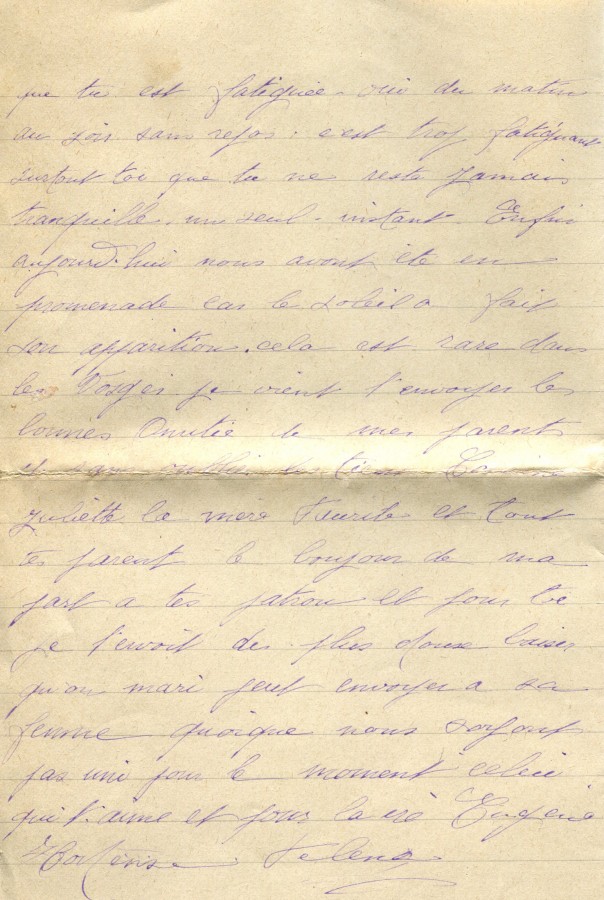 que tu est fatiguée. oui du matin
au soir sans repos. c'est trop fatiguant
surtout toi que tu ne reste jamais
tranquille un seul instant. Enfin
aujourd'hui nous avont été en
promenade car le soleil a fait
son apparition. cela est rare dans
les Vosges je vient t'envoyer les
bonnes Amitié de mes parents
et sans oublié les tiens
Juliette la mère et tout
tes parent le bonjour de ma
part a tes patron et pour toi
je t'envoit des plus doux baiser
qu'un mari peut envoyer a sa
femme quoique nous soyont
pas uni pour le moment celui
qui t'aime et pour la vie Eugène
Hortense Felenc